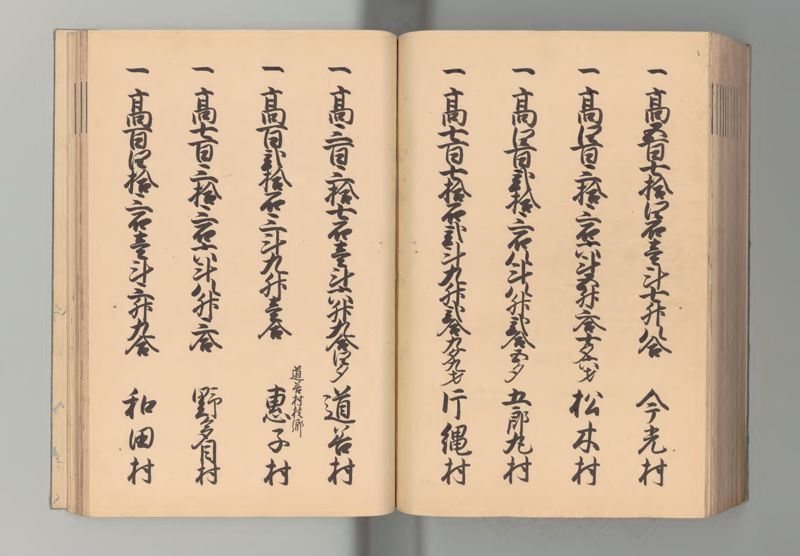 一 高五百七拾四石壱斗七升八合 今光村
一 高四百三拾三石六斗五升三合七夕六才 松木村
一 高四百弐拾三石八斗八升弐合五夕 五郎丸村
一 高七百七拾石弐斗九升弐合九夕九才 片縄村
一 高三百三拾七石壱斗六升九合四夕 道善村
一 高百弐拾石三斗九升壱合 道善村枝郷 恵子村
一 高七百三拾三石六斗八升三合 野多目村
一 高百四拾三石壱斗三升九合 和田村